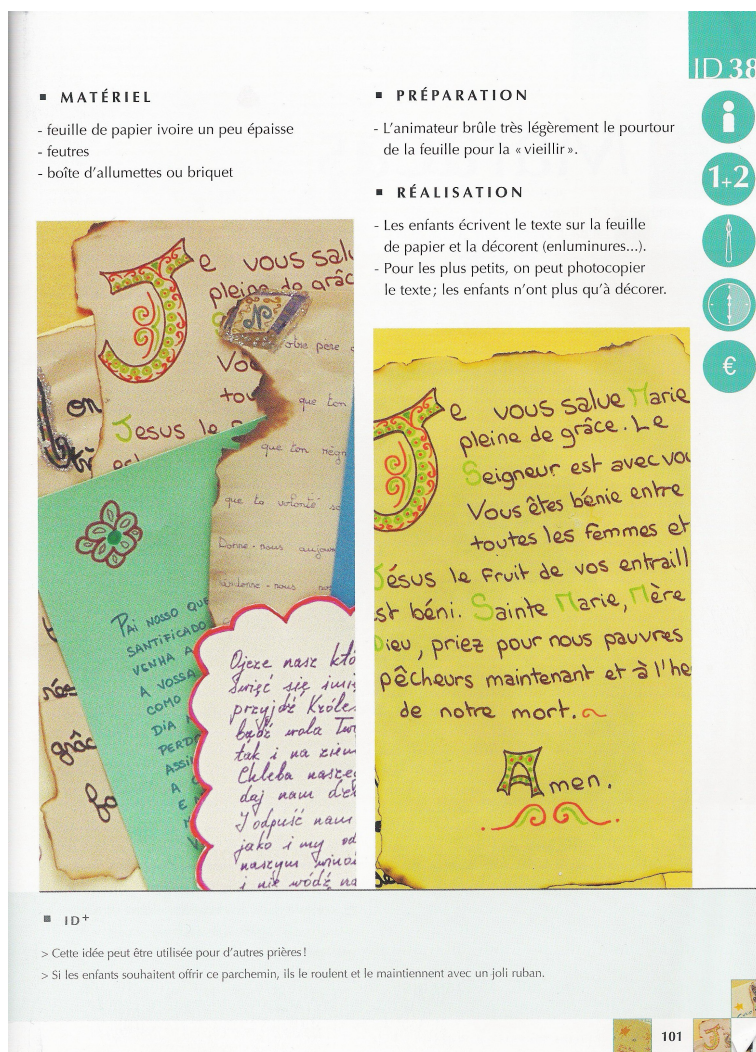 ID 38
MATÉRIEL
- feuille de papier ivoire un peu épaisse
- feutres
- boîte d'allumettes ou briquet
PRÉPARATION
- L'animateur brûle très légèrement le pourtour
de la feuille pour la « vieillir ».
RÉALISATION
- Les enfants écrivent le texte sur la feuille
de papier et la décorent (enluminures...).
- Pour les plus petits, on peut photocopier
le texte ; les enfants n'ont plus qu'à décorer.
1+2
€
Je vous salu
pleine de grâc
Vou
tou
Jesus le
otre père
que ton
que ton règn
que ta volonté so
Donne-nous aujour
on
trè
née
grâc
PAI NOSSO QUE
SANTIFICADO
VENHA A
A VOSSA
COMO
DIA
PERDO
ASSI
A
E
Ojcze nasz któ
Święć się imię
przyjdź Króle
bądź wola Tw
tak i na ziem
Chleba nasze
daj nam dz
I odpuść nam
jako i my od
naszym wino
i nie wódź na
Je vous salue Marie
pleine de grâce. Le
Seigneur est avec vou
Vous êtes bénie entre
toutes les femmes et
Jésus le fruit de vos entraill
st béni. Sainte Marie, Mère
Dieu, priez pour nous pauvres
pêcheurs maintenant et à l'he
de notre mort.
Amen.
ID+
> Cette idée peut être utilisée pour d'autres prières !
> Si les enfants souhaitent offrir ce parchemin, ils le roulent et le maintiennent avec un joli ruban.
101